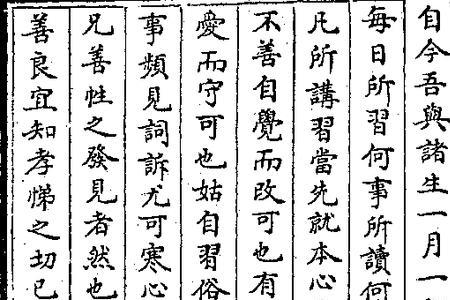 自今吾與諸生一月一
每日所習何事所讀何
凡所講習當先就本心
不善自覺而改可也有
愛而守可也姑自習俗
事頻見詞訴尤可寒心
兄善性之發見者然也
善良宜知孝悌之切己